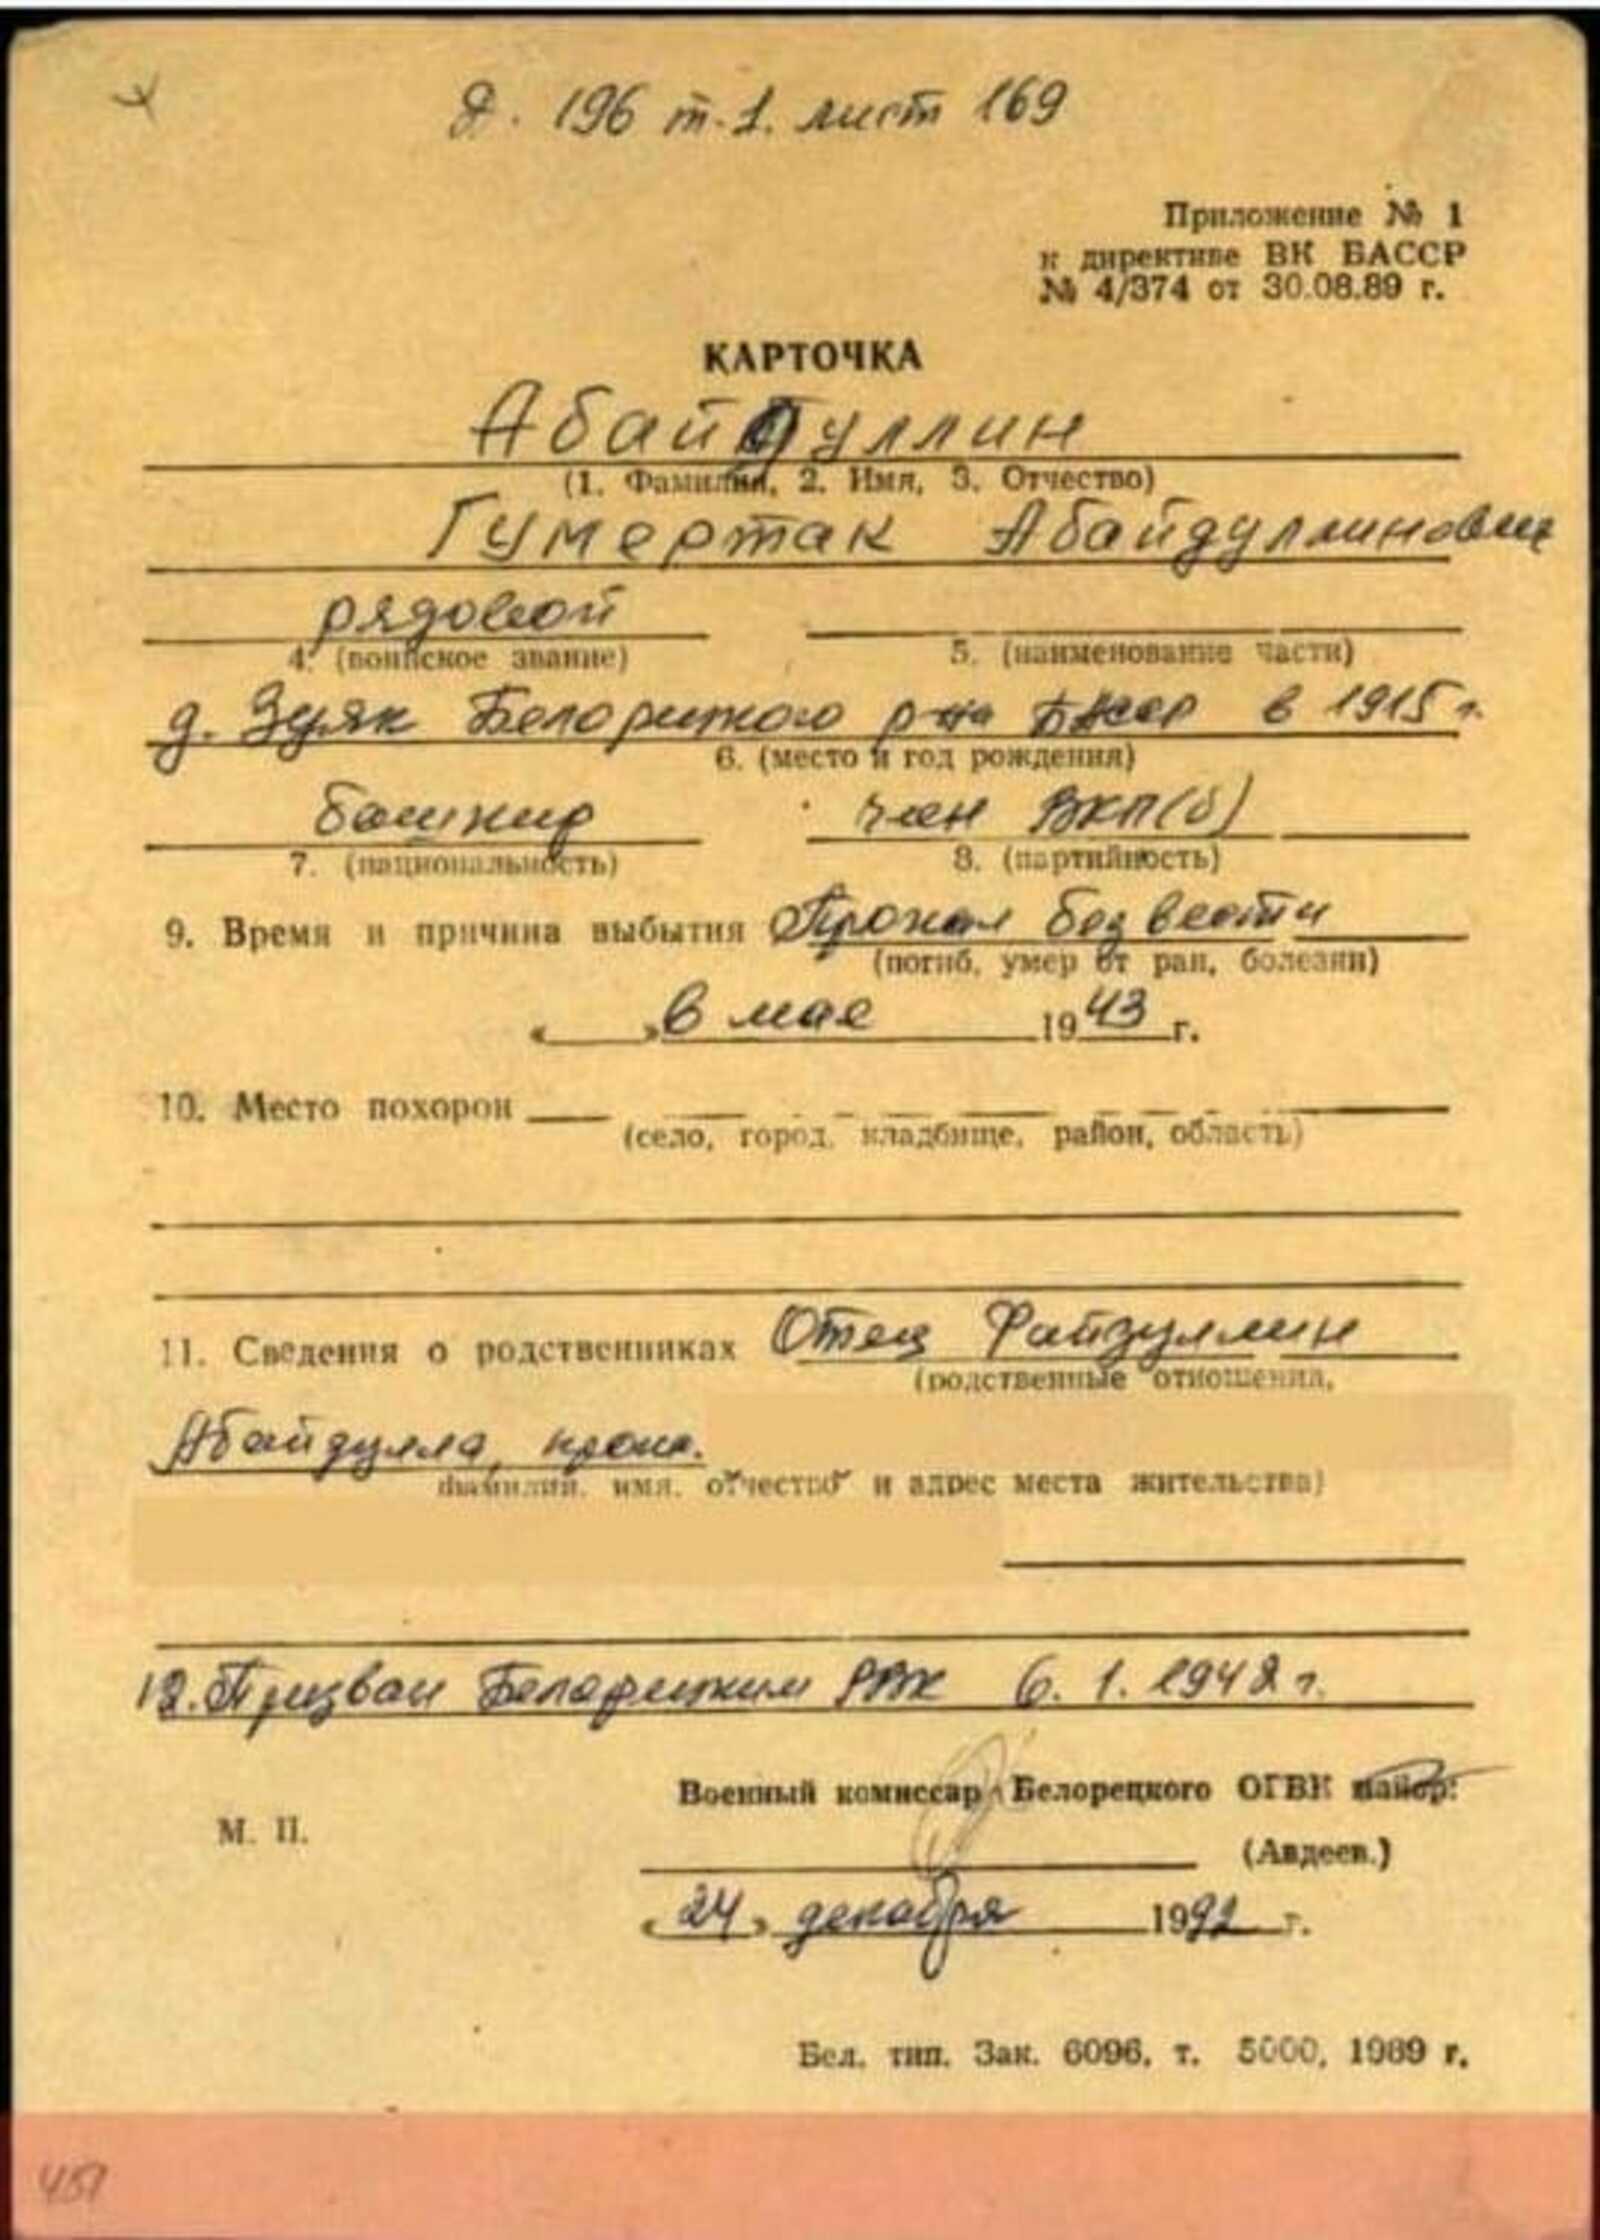 Д. 196 т. 1. лист 169
Приложение № 1
к директиве ВК БАССР
№ 4/374 от 30.08.89 г.
КАРТОЧКА
Абайдуллин
(1. Фамилия, 2. Имя, 3. Отчество)
Гумертак Абайдуллинович
рядовой
4. (воинское звание) 5. (наименование части)
д. Зуяк Белорецкого р-на БАССР в 1915 г.
6. (место и год рождения)
башкир член ВКП(б)
7. (национальность) 8. (партийность)
9. Время и причина выбытия Пропал без вести
(погиб, умер от ран, болезни)
« » в мае 1943 г.
10. Место похорон
(село, город, кладбище, район, область)
11. Сведения о родственниках Отец Файзуллин
(родственные отношения,
Абайдулла, прож.
фамилия, имя, отчество и адрес места жительства)
12. Призван Белорецким РВК 6. 1. 1942 г.
Военный комиссар Белорецкого ОГВК майор:
М. П.
(Авдеев.)
« 24 » декабря 1992 г.
Бел. тип. Зак. 6096, т. 5000, 1989 г.
451